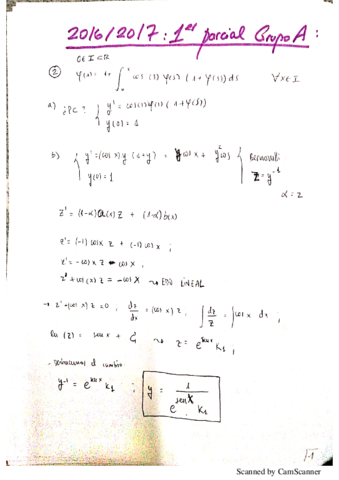 2016/2017: 1er parcial Grupo A:
0 ∈ I ⊂ R
② φ(x) = 1 + ∫₀ˣ cos(s) φ(s) (1 + φ(s)) ds ∀x ∈ I
a) ¿PC? { y' = cos(s) φ(s) (1 + φ(s))
y(0) = 1
b) { y' = (cos x) y (1+y) = y cos x + y² cos x } Bernoulli
y(0) = 1 z = y⁻¹
α = 2
z' = (1-α) a(x) z + (1-α) b(x)
z' = (-1) cos x z + (-1) cos x ;
z' = -cos x z - cos x ,
z' + cos(x) z = -cos x ⇝ EDO LINEAL
→ z' + cos(x) z = 0 , dz/dx = (cos x) z , ∫ dz/z = ∫ cos x dx ,
ln (z) = sen x + C₁ ⇝ z = e^{sen x} K₁ ,
el cambio
y⁻¹ = e^{sen x} K₁ ; y = 1 / (e^{sen x} · K₁)
Scanned by CamScanner